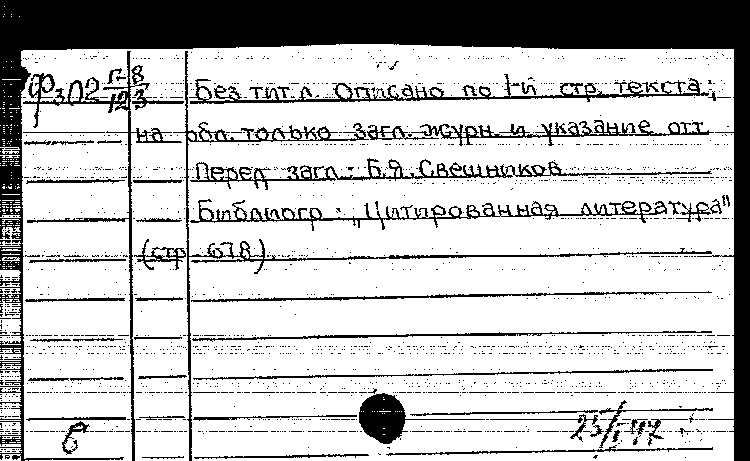 Ф₃П2 Г-8/12 3
Без тит. л. Описано по 1-й стр. текста;
на обл. только загл. журн. и указание отт.
Перед загл.: Б.Я. Свешников
Библиогр.: „Цитированная литература"
(стр. 678).